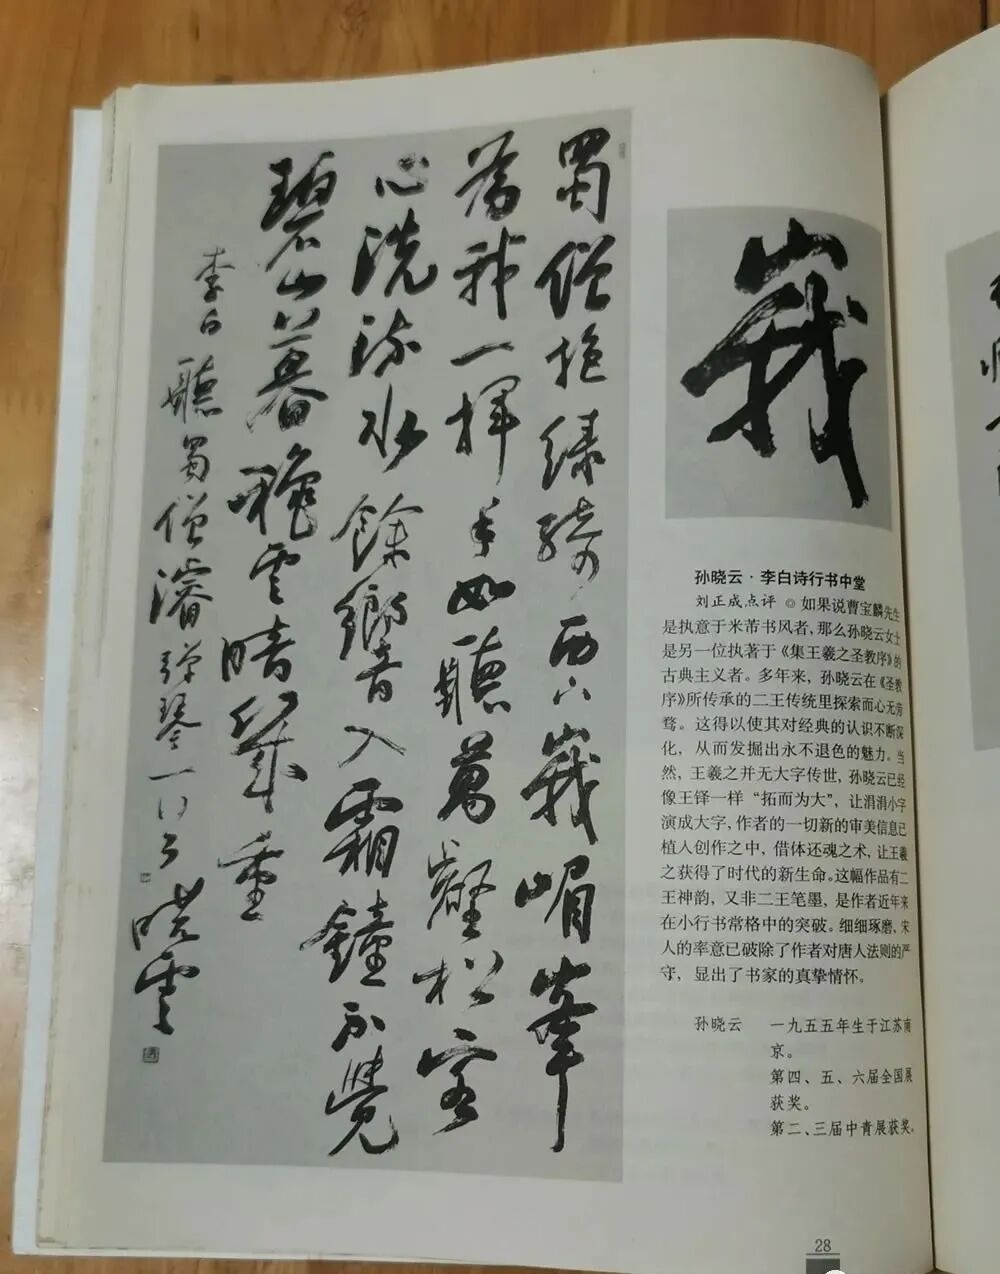 蜀僧抱緑綺西下峩嵋峯
為我一揮手如聽萬壑松客
心洗流水餘響入霜鐘不覺
碧山暮穐雲暗幾重
李白聽蜀僧濬彈琴一
曉雲
峩
孙晓云·李白诗行书中堂
刘正成点评 ◎如果说曹宝麟先生
是执意于米芾书风者，那么孙晓云女士
是另一位执著于《集王羲之圣教序》的
古典主义者。多年来，孙晓云在《圣教
序》所传承的二王传统里探索而心无旁
骛。这得以使其对经典的认识不断深
化，从而发掘出永不退色的魅力。当
然，王羲之并无大字传世，孙晓云已经
像王铎一样“拓而为大”，让涓涓小字
演成大字，作者的一切新的审美信息已
植入创作之中，借体还魂之术，让王羲
之获得了时代的新生命。这幅作品有二
王神韵，又非二王笔墨，是作者近年来
在小行书常格中的突破。细细琢磨，宋
人的率意已破除了作者对唐人法则的严
守，显出了书家的真挚情怀。
孙晓云 一九五五年生于江苏南
京。
第四、五、六届全国展
获奖。
第二、三届中青展获奖。
28